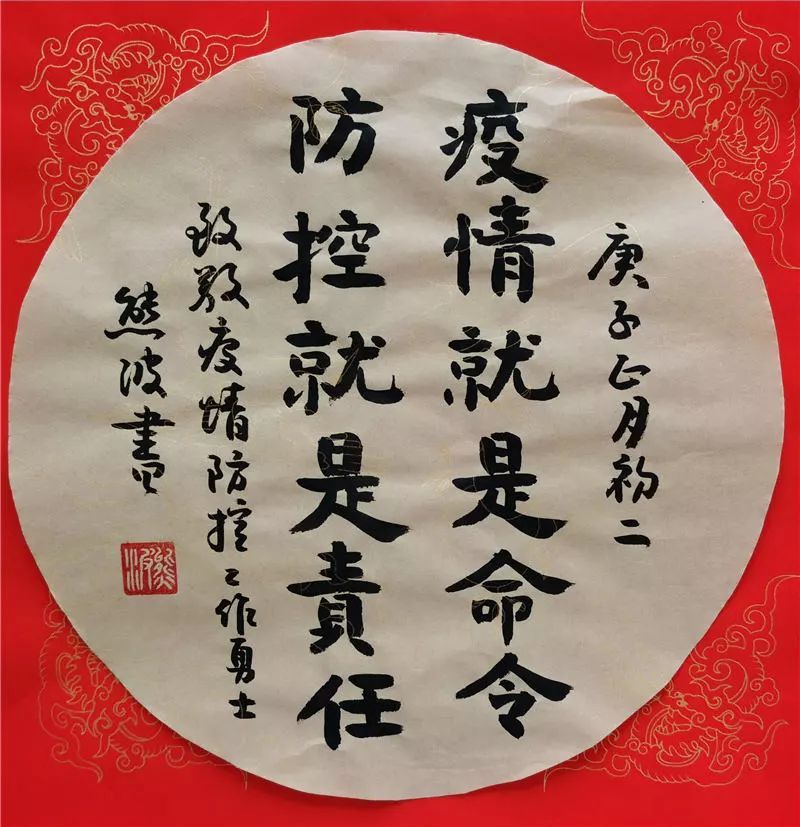 庚子正月初二
疫情就是命令
防控就是責任
致敬疫情防控工作勇士
熊波書
熊波